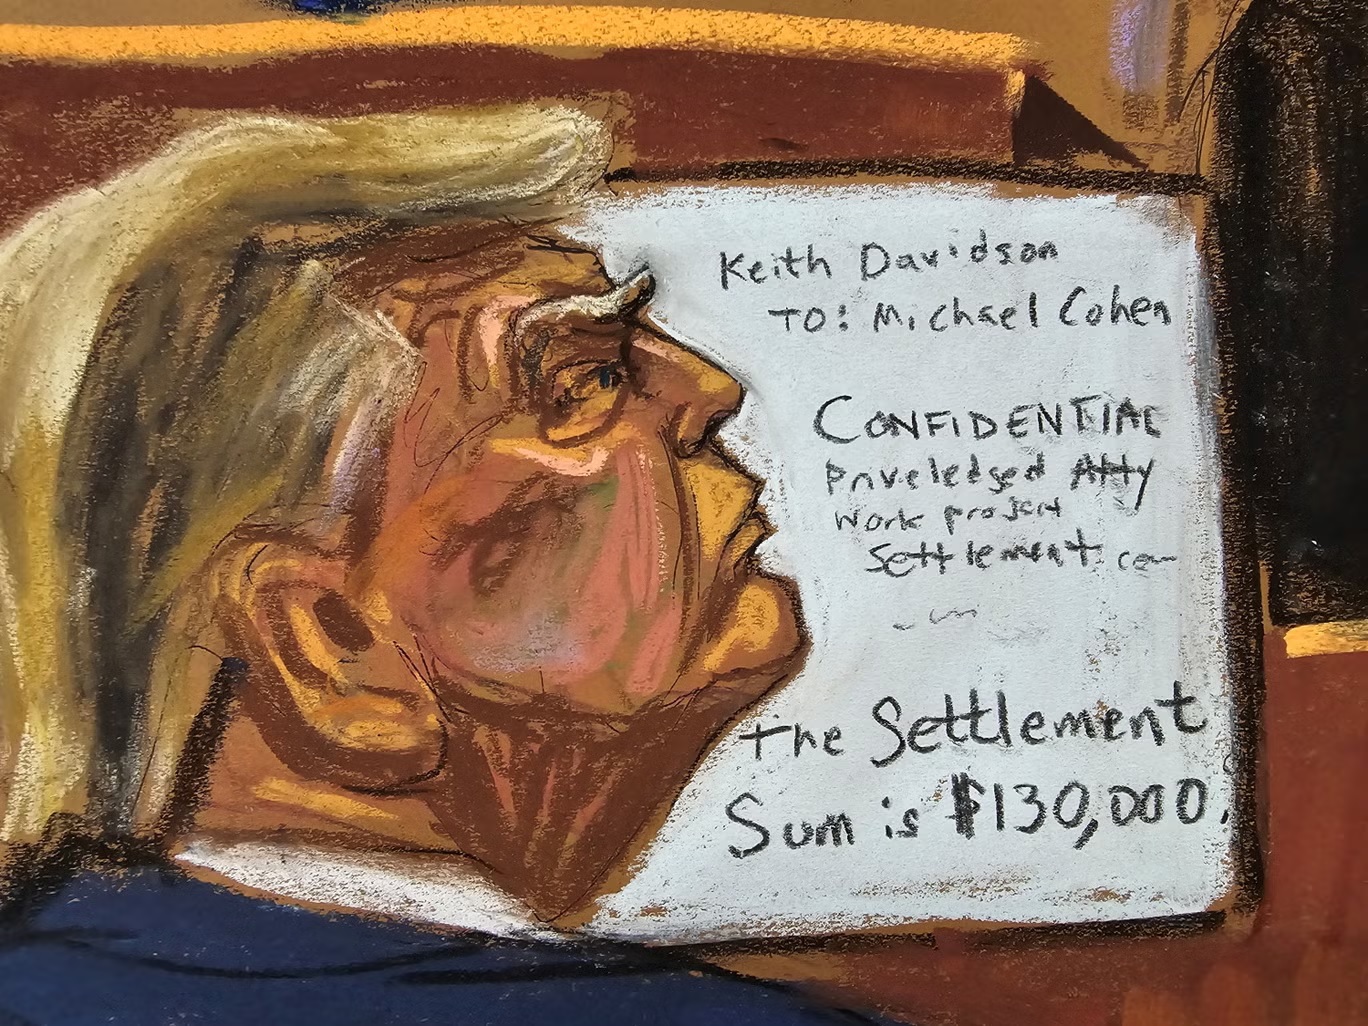 Keith Davidson
TO: Michael Cohen
CONFIDENTIAL
Priveledged Atty
Work project
Settlement
the Settlement
Sum is $130,000.